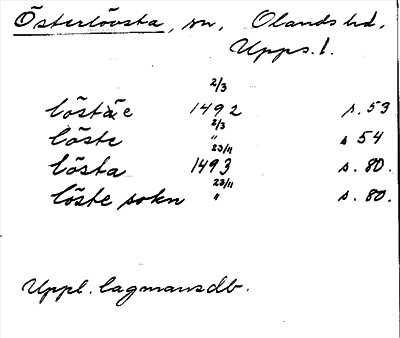 Österlövsta, sn, Olands hd,
Upps. l.
2/3
löstäe 1492 s. 53
2/3
löste " s 54
23/11
lösta 1493 s. 80.
23/11
löste sokn " s. 80.
Uppl. lagmansdb.